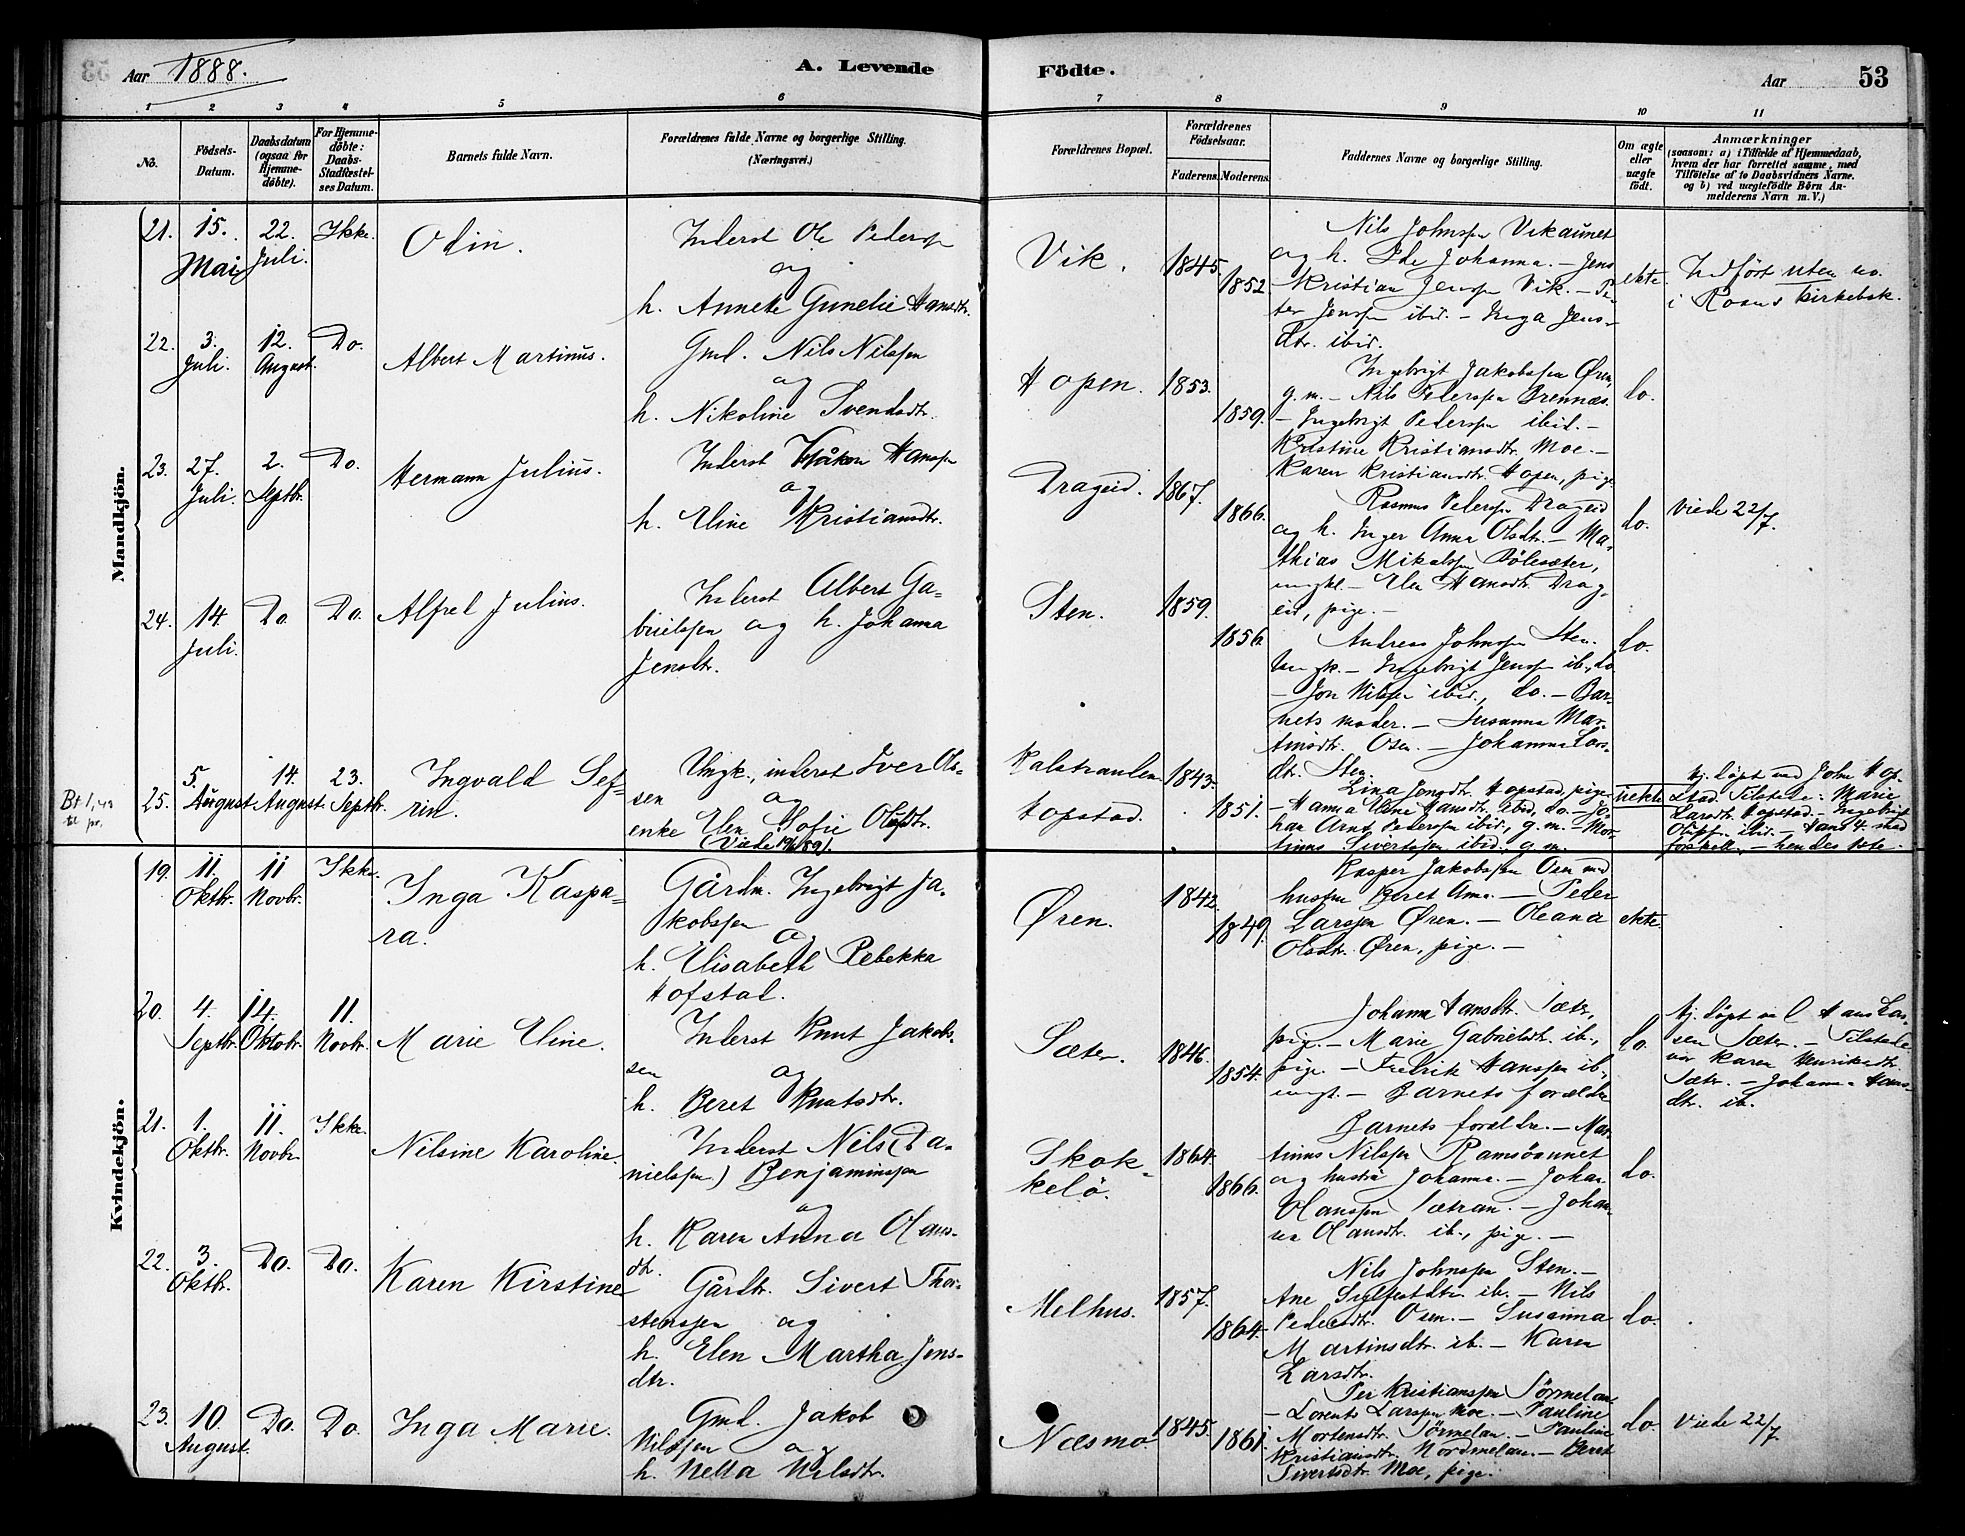 Aar 1888.
A. Levende Födte.
Aar
53
1 2 3 4 5 6 7 8 9 10 11
No.
Födsels-
Datum.
Daabsdatum
(ogsaa for
Hjemme-
döbte).
For Hjemme-
döbte:
Daabs-
Stadfæstel-
ses Datum.
Barnets fulde Navn.
Forældrenes fulde Navne og borgerlige Stilling.
(Næringsvei.)
Forældrenes Bopæl.
Forældrenes
Födselsaar.
Faderens. Moderens.
Faddernes Navne og borgerlige Stilling.
Om ægte
eller
uægte
født.
Anmærkninger
(saasom: a) i Tilfælde af Hjemmedaab,
hvem der har forrettet samme, med
Tilföielse af to Daabsvidners Navne.
og b) ved uægtefödte Börn An-
melderens Navn m. V.)
Mandkjön.
21. 15. Mai 22. Juli. Ikke. Odin.
Inderst Ole Pedersen
og
h. Annette Gunelie Hansdtr.
Vik. 1845. 1852.
Nils Johnsen Vikaunet
og h. Ide Johanna. - Jens
Kristian Jensen Vik. - Pe-
ter Jensen ibid. - Inga Jens-
dtr. ibid.
ekte.
Indført uten no.
i Roans kirkebok.
22. 3. Juli. 12. August. Do. Albert Martinus.
Gmd. Nils Nilssen
og
h. Nikoline Svendsdtr.
Hopen. 1853. 1859.
Ingebrigt Jakobssen Øren,
g.m. - Nils Pederssen Brennæs.
- Ingebrigt Pederssen ibid. -
Kristine Kristiansdtr. Moe. -
Karen Kristiansdtr. Hopen, pige
do.
23. 27. Juli. 2. Septbr. Do. Hermann Julius.
Inderst Håkon Hanssen
og
h. Eline Kristiansdtr.
Drageid. 1867. 1866.
Rasmus Pederssen Drageid
og h. Inger Anna Olsdtr. - Ma-
thias Mikalssen Pølesæter,
ungkl. - Elen Hansdtr. Drag-
eid, pige. -
do.
Viede 22/7.
24. 14 Juli. Do. Do. Alfred Julius.
Inderst Albert Ga-
brielssen og h. Johanna
Jensdtr.
Sten. 1859. 1856.
Andreas Johnssen Sten.
ungk. - Ingebrigt Jenssen ib., do
- Jon Nilssen ibid., do. - Bar-
nets moder. - Susanna Mar-
tinsdtr. Osen. - Johanna Lars-
dtr. Sten.
do.
25. 5. August 14. August 23. Septbr. Ingvald Sef-
rin.
Ungk., inderst Iver Ols-
sen og
enke Elen Sofie Olsdtr.
Hopstad. 1843. 1851.
Lina Jensdtr. Hopstad, pige
- Hanna Eline Hansdtr. ibid, do. - Jo-
han Arnt Pederssen ibid., g.m. - Mor-
tinus Sivertssen ibid., g.m.
uekte
Hj. døpt ved John Hop-
stad. Tilstede: Marie
Larsdtr. Hopstad. - Ingebrigt
Kvindekjön.
19. 11. Oktbr. 11 Novbr. Ikke. Inga Kaspa-
ra.
Gårdm. Ingebrigt Ja-
kobssen og
h. Elisabeth Rebekka
Hofstad.
Øren. 1842. 1849.
Kasper Jakobssen Osen med
hustru Beret Anna. - Peder
Larssen Øren. - Oleana
Olsdtr. Øren, pige. -
ekte.
20. 4. Septbr. 14. Oktobr. 11. Novbr. Marie Eline.
Inderst Knut Jakobs-
sen og
h. Beret Knutsdtr.
Sæter. 1846. 1854.
Johanna Hansdtr. Sætr,
pig. - Marie Gabrielsdtr. ib.,
pige. - Fredrik Hanssen ib.,
ungk. - Barnets forældre
do.
Hj. døpt ved Hans Las-
sen Sætr. - Tilstede
var Karen Henriksdtr.
Sætr. - Johanna Hans-
dtr. ib.
21. 1. Oktbr. 11. Novbr. Ikke. Nilsine Karoline.
Inderst Nils (Da-
nielssen) Benjaminssen
og
h. Karen Anna Hans-
dtr.
Skok-
kelö. 1864. 1866.
Barnets forældre. - Mar-
tinus Nilssen Ramsöaunet
og hustru Johanna. - Johan
Hanssen Sætran. - Johan-
na Hansdtr. ib., pige. -
do.
22. 3. Oktbr. Do. Do. Karen Kirstine
Gårdbr. Sivert Thor-
stenssen og
h. Elen Martha Jens-
dtr.
Melhus. 1857. 1864.
Nils Johnssen Sten. -
Ane Sylfestdtr ib. - Nils
Pedersdtr. Osen. - Susanna
Martinsdtr. ib. - Karen
Larsdtr.
do.
23. 10. August. Do. Do. Inga Marie.
Gmd. Jakob
Nilssen og
h. Netta Nilsdtr.
Næsmo 1845. 1861.
Per Kristianssen Sörmelan
- Lorents Larssen Moe. - Pauline
Mortensdtr. Sörmelan. - Pauline
Kristiansdtr. Nordmelan. - Beret
Sivertsdtr. Moe, pige.
do.
Viede 22/7.